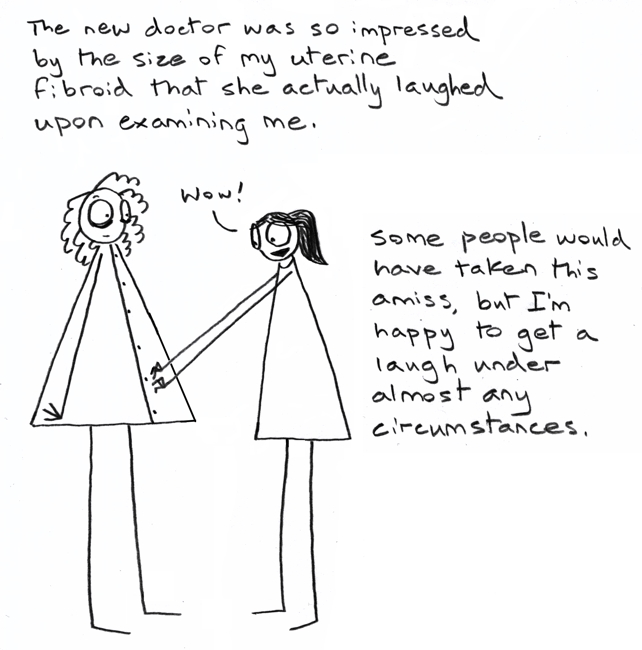 The new doctor was so impressed
by the size of my uterine
fibroid that she actually laughed
upon examining me.
Wow!
Some people would
have taken this
amiss, but I'm
happy to get a
laugh under
almost any
circumstances.